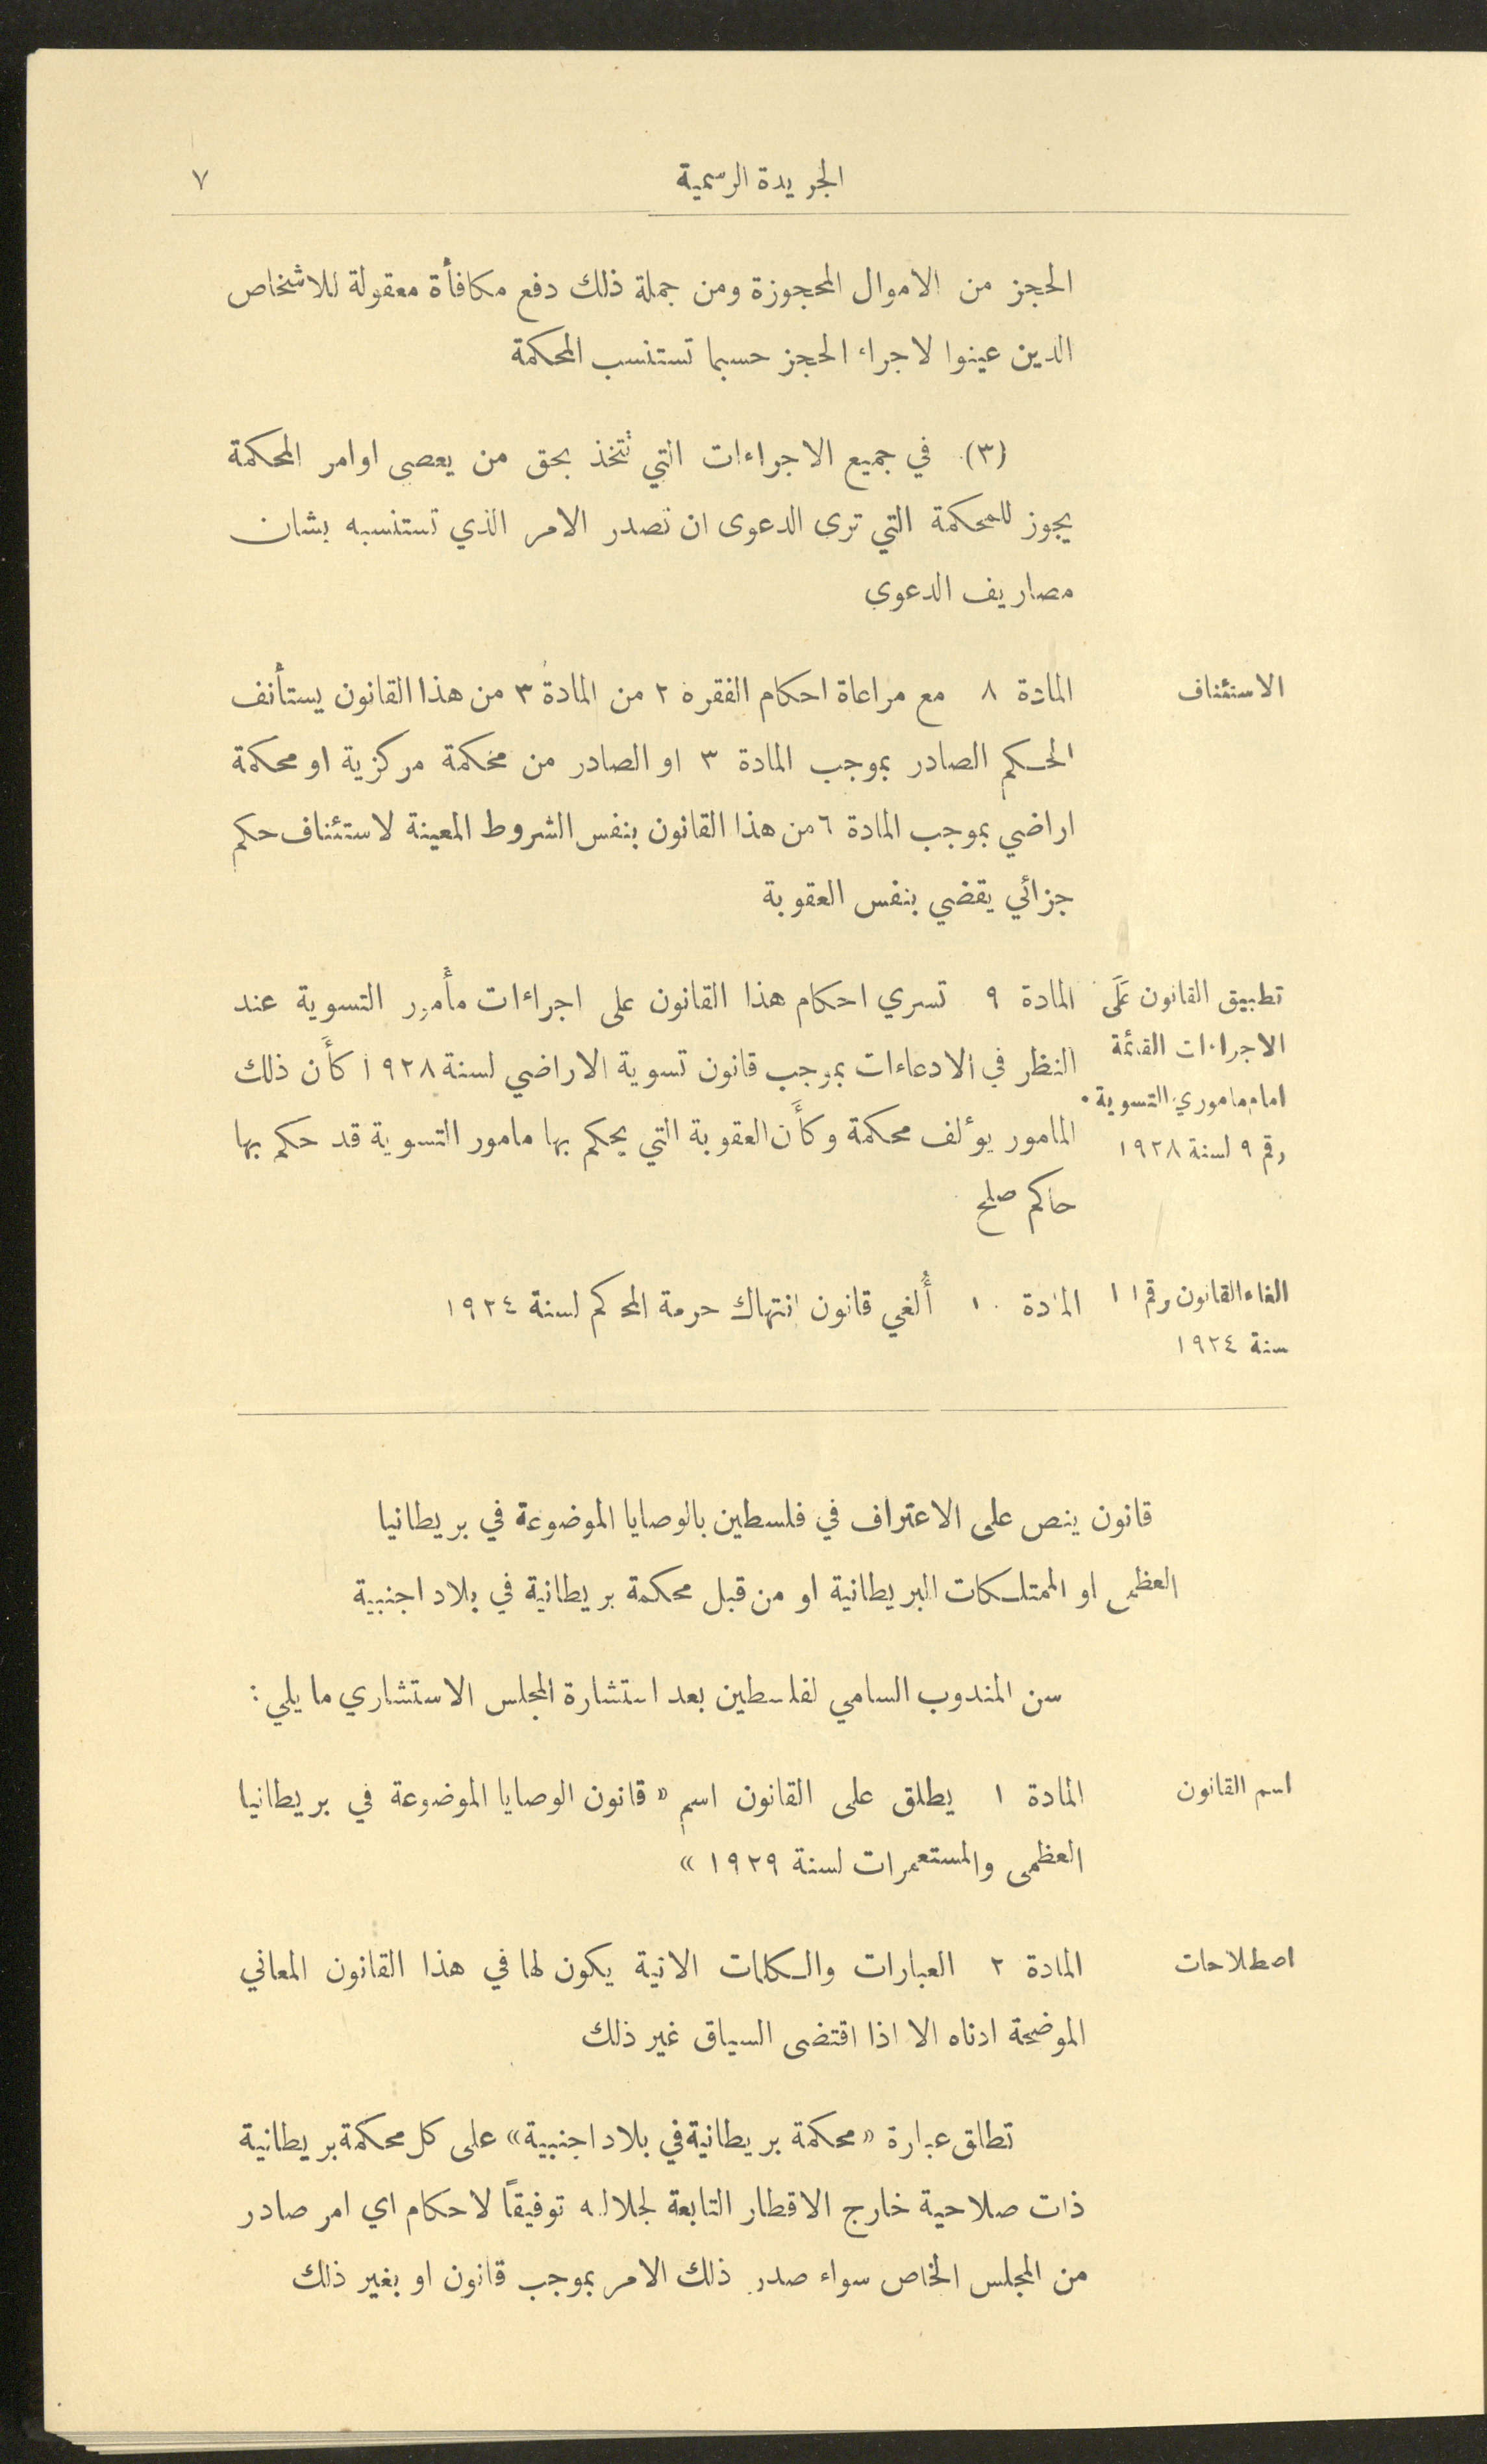 الجريدة الرسمية
٧
الحجز من الاموال المحجوزة ومن جملة ذلك دفع مكافأة معقولة للاشخاص
الدين عينوا لاجراء الحجز حسبما تستنسب المحكمة
(٣) في جميع الاجراءات التي تتخذ بحق من يعصى اوامر المحكمة
يجوز للمحكمة التي ترى الدعوى ان تصدر الامر الذي تستنسبه بشان
مصاريف الدعوى
الاستئناف
المادة ٨ مع مراعاة احكام الفقره ٢ من المادة ٣ من هذا القانون يستأنف
الحكم الصادر بموجب المادة ٣ او الصادر من محكمة مركزية او محكمة
اراضي بموجب المادة ٦ من هذا القانون بنفس الشروط المعينة لاستئناف حكم
جزائي يقضي بنفس العقوبة
تطبيق القانون عَلَى
الاجراءات القائمة
امام ماموري التسوية
رقم ٩ لسنة ١٩٢٨
المادة ٩ تسري احكام هذا القانون على اجراءات مأمور التسوية عند
النظر في الادعاءات بموجب قانون تسوية الاراضي لسنة ١٩٢٨ كأَن ذلك
المامور يؤلف محكمة وكأَن العقوبة التي يحكم بها مامور التسوية قد حكم بها
حاكم صلح
الغاء القانون رقم ١١
سنة ١٩٢٤
المادة ١٠ أُلغي قانون انتهاك حرمة المحاكم لسنة ١٩٢٤
قانون ينص على الاعتراف في فلسطين بالوصايا الموضوعة في بريطانيا
العظمى او الممتلكات البريطانية او من قبل محكمة بريطانية في بلاد اجنبية
سن المندوب السامي لفلسطين بعد استشارة المجلس الاستشاري ما يلي :
اسم القانون
المادة ١ يطلق على القانون اسم « قانون الوصايا الموضوعة في بريطانيا
العظمى والمستعمرات لسنة ١٩٢٩ »
اصطلاحات
المادة ٢ العبارات والكلمات الاتية يكون لها في هذا القانون المعاني
الموضحة ادناه الا اذا اقتضى السياق غير ذلك
تطلق عبارة « محكمة بريطانية في بلاد اجنبية » على كل محكمة بريطانية
ذات صلاحية خارج الاقطار التابعة لجلالته توفيقاً لاحكام اي امر صادر
من المجلس الخاص سواء صدر ذلك الامر بموجب قانون او بغير ذلك